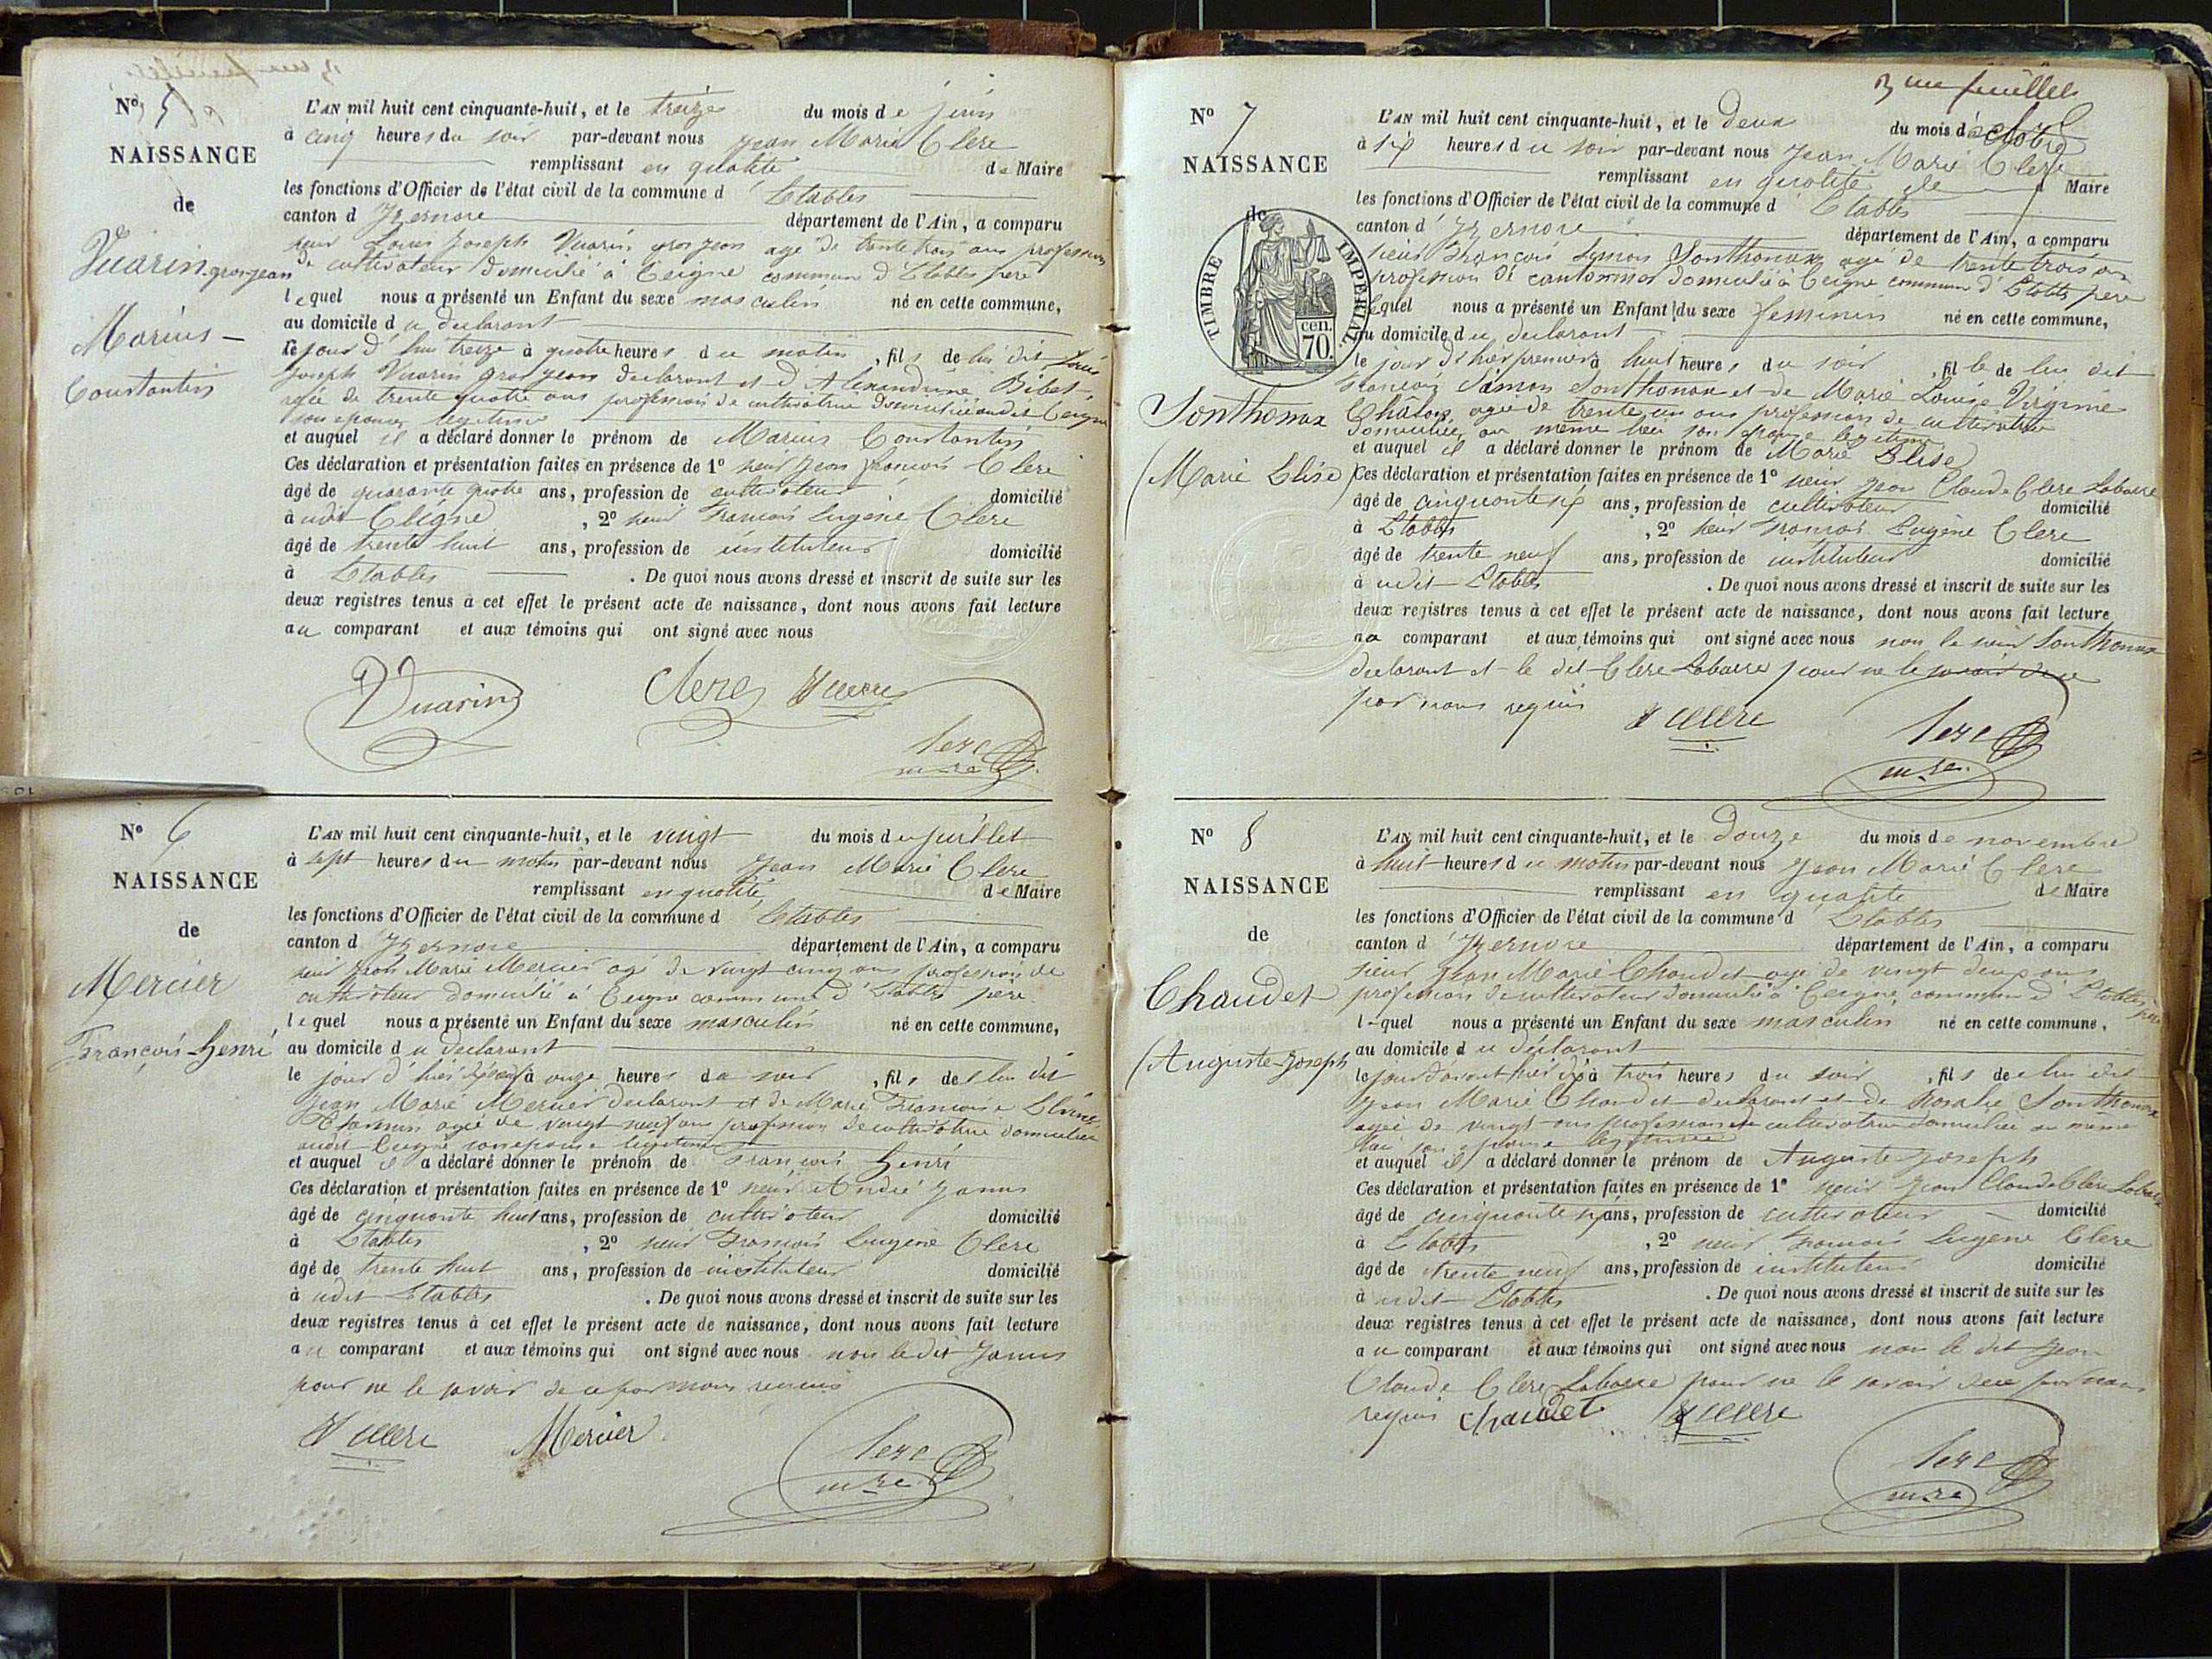 N° 5
NAISSANCE
de
Vuarin-grosjean
Marius
Constantin
L'AN mil huit cent cinquante-huit, et le treize du mois de juin
à cinq heures du soir par-devant nous Jean Marie Clerc
remplissant en qualité de Maire
les fonctions d'Officier de l'état civil de la commune d'Etables
canton d'Izernore département de l'Ain, a comparu
sieur Louis Joseph Vuarin grosjean agé de trente trois ans profession
de cultivateur domicilié à Ceigne commune d'Etables père
lequel nous a présenté un Enfant du sexe masculin né en cette commune,
au domicile du declarant
le jour d'hui treize à quatre heures du matin, fils de lui dit Louis
Joseph Vuarin grosjean declarant et d'Alexandrine Bibet
agée de trente quatre ans profession de cultivatrice domiciliée audit Ceigne
son epouse legitime
et auquel il a déclaré donner le prénom de Marius Constantin
Ces déclaration et présentation faites en présence de 1° sieur Jean François Clerc
âgé de quarante quatre ans, profession de cultivateur domicilié
à udit Ceigne, 2° sieur François Eugène Clerc
âgé de trente huit ans, profession de instituteur domicilié
à Etables. De quoi nous avons dressé et inscrit de suite sur les
deux registres tenus à cet effet le présent acte de naissance, dont nous avons fait lecture
au comparant et aux témoins qui ont signé avec nous
Vuarin Clerc Clerc
Clerc
mre
N° 6
NAISSANCE
de
Mercier
François-Henri
L'AN mil huit cent cinquante-huit, et le vingt du mois de juillet
à sept heures du matin par-devant nous Jean Marie Clerc
remplissant en qualité de Maire
les fonctions d'Officier de l'état civil de la commune d'Etables
canton d'Izernore département de l'Ain, a comparu
sieur Jean Marie Mercier agé de vingt cinq ans profession de
cultivateur domicilié à Ceigne commune d'Etables père
lequel nous a présenté un Enfant du sexe masculin né en cette commune,
au domicile du declarant
le jour d'hier à onze heures du soir, fils de lui dit
Jean Marie Mercier declarant et de Marie Françoise
agée de vingt neuf ans profession de cultivatrice domiciliée
audit Ceigne son epouse legitime
et auquel il a déclaré donner le prénom de François Henri
Ces déclaration et présentation faites en présence de 1° sieur André Janus
âgé de cinquante huit ans, profession de cultivateur domicilié
à Etables, 2° sieur François Eugène Clerc
âgé de trente huit ans, profession de instituteur domicilié
à udit Etables. De quoi nous avons dressé et inscrit de suite sur les
deux registres tenus à cet effet le présent acte de naissance, dont nous avons fait lecture
au comparant et aux témoins qui ont signé avec nous non ledit Janus
pour ne le savoir de ce par nous requis
Clerc Mercier
Clerc
mre
3me feuillet
N° 7
NAISSANCE
de
TIMBRE IMPÉRIAL
70 cen.
Sonthonax
(Marie Elise)
L'AN mil huit cent cinquante-huit, et le deux du mois d'octobre
à six heures du soir par-devant nous Jean Marie Clerc
remplissant en qualité de Maire
les fonctions d'Officier de l'état civil de la commune d'Etables
canton d'Izernore département de l'Ain, a comparu
sieur François Simon Sonthonax agé de trente trois ans
profession de cantonnier domicilié à Ceigne commune d'Etables père
lequel nous a présenté un Enfant du sexe feminin né en cette commune,
au domicile du declarant
le jour d'hier premier à huit heures du soir, fille de lui dit
François Simon Sonthonax et de Marie Louise Virginie
Châlon agée de trente un ans profession de cultivatrice
domiciliée au même lieu son epouse legitime
et auquel il a déclaré donner le prénom de Marie Elise
Ces déclaration et présentation faites en présence de 1° sieur Jean Claude Clerc Labarre
âgé de cinquante six ans, profession de cultivateur domicilié
à Etables, 2° sieur François Eugène Clerc
âgé de trente neuf ans, profession de instituteur domicilié
à udit Etables. De quoi nous avons dressé et inscrit de suite sur les
deux registres tenus à cet effet le présent acte de naissance, dont nous avons fait lecture
au comparant et aux témoins qui ont signé avec nous non le sieur Sonthonax
declarant et le dit Clerc Labarre pour ne le savoir de ce
par nous requis
Clerc Clerc
mre
N° 8
NAISSANCE
de
Chaudet
(Auguste-Joseph
L'AN mil huit cent cinquante-huit, et le douze du mois de novembre
à huit heures du matin par-devant nous Jean Marie Clerc
remplissant en qualité de Maire
les fonctions d'Officier de l'état civil de la commune d'Etables
canton d'Izernore département de l'Ain, a comparu
sieur Jean Marie Chaudet agé de vingt deux ans
profession de cultivateur domicilié à Ceigne commune d'Etables père
lequel nous a présenté un Enfant du sexe masculin né en cette commune,
au domicile du déclarant
le jour d'avant hier dix à trois heures du soir, fils de lui dit
Jean Marie Chaudet declarant et de Rosalie Sonthonax
agée de vingt ans profession de cultivatrice domiciliée au meme
lieu son epouse legitime
et auquel il a déclaré donner le prénom de Auguste Joseph
Ces déclaration et présentation faites en présence de 1° sieur Jean Claude Clerc Labarre
âgé de cinquante six ans, profession de cultivateur domicilié
à Etables, 2° sieur François Eugène Clerc
âgé de trente neuf ans, profession de instituteur domicilié
à udit Etables. De quoi nous avons dressé et inscrit de suite sur les
deux registres tenus à cet effet le présent acte de naissance, dont nous avons fait lecture
au comparant et aux témoins qui ont signé avec nous non le dit Jean
Claude Clerc Labarre pour ne le savoir de ce par nous
requis chaudet Clerc
Clerc
mre